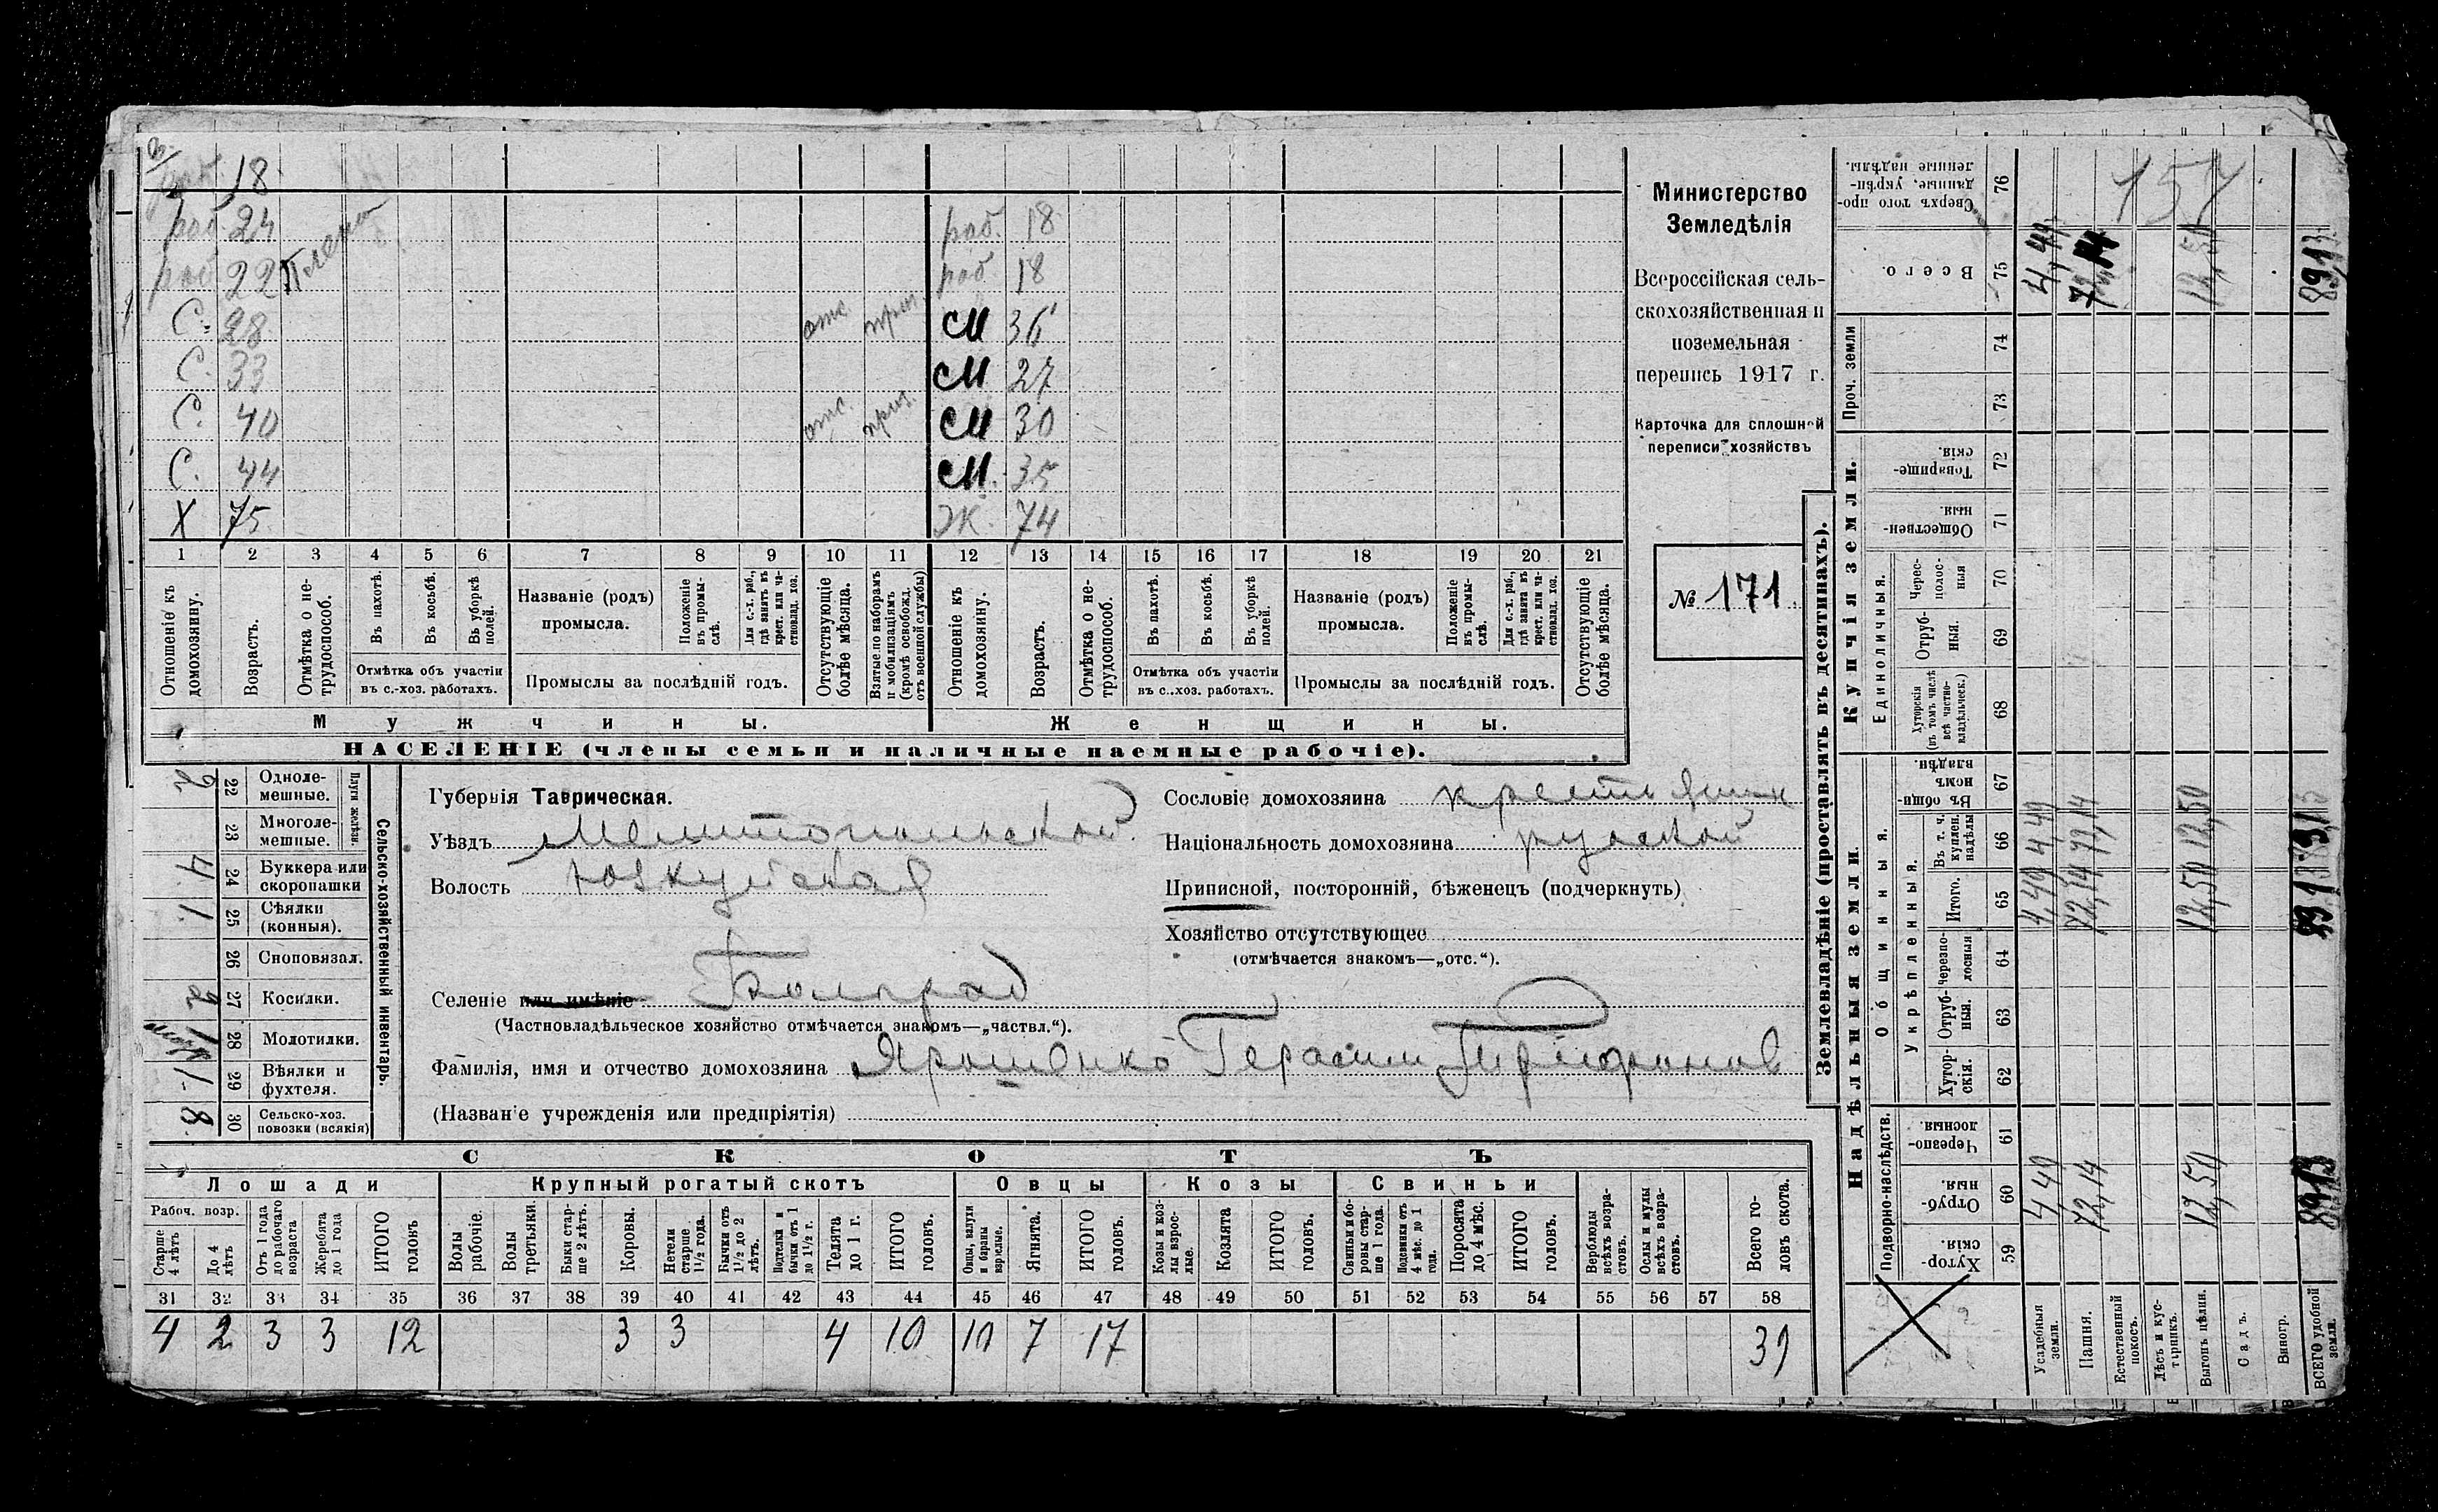 раб. 18.
раб 24
раб 22 Плен
С. 28. отс. приз. СМ 36
С. 33 СМ 27
С. 40 отс. приз. СМ 30
С. 44 СМ. 35
Х 75. Ж. 74
раб. 18
раб. 18
1 2 3 4 5 6 7 8 9 10 11 12 13 14 15 16 17 18 19 20 21
Отношеніе къ домохозяину.
Возрастъ.
Отмѣтка о не-трудоспособ.
Въ пахотѣ.
Въ косьбѣ.
Въ уборкѣ полей.
Отмѣтка объ участіи
въ с.-хоз. работахъ.
Названіе (родъ)
промысла.
Положеніе въ промы-слѣ.
Для с.-х. раб., гдѣ занятъ въ крест. или ча-стновлад. хоз.
Промыслы за послѣдній годъ.
Отсутствующіе болѣе мѣсяца.
Взятые по наборамъ и мобилизаціямъ (кромѣ освобожд. отъ военной службы)
Отношеніе къ домохозяину.
Возрастъ.
Отмѣтка о не-трудоспособ.
Въ пахотѣ.
Въ косьбѣ.
Въ уборкѣ полей.
Отмѣтка объ участіи
въ с.-хоз. работахъ.
Названіе (родъ)
промысла.
Положеніе въ промы-слѣ.
Для с.-х. раб., гдѣ занята въ крест. или ча-стновлад. хоз.
Промыслы за послѣдній годъ.
Отсутствующіе болѣе мѣсяца.
Мужчины. Женщины.
НАСЕЛЕНІЕ (члены семьи и наличные наемные рабочіе).
Министерство
Земледѣлія
Всероссійская сель-
скохозяйственная и
поземельная
перепись 1917 г.
Карточка для сплошной
переписи хозяйствъ
№ 171.
Плуги желѣзн.
2 22 Одноле-мешные.
23 Многоле-мешные.
4 24 Буккера или скоропашки
1. 25 Сѣялки (конныя).
26 Сноповязал.
2 27 Косилки.
1 28 Молотилки.
1 29 Вѣялки и фухтеля.
8. 30 Сельско-хоз. повозки (всякія)
Сельско-хозяйственный инвентарь.
Губернія Таврическая.
Уѣздъ Мелитопольской
Волость Юзкуйская
Селеніе или имѣніе Болград
(Частновладѣльческое хозяйство отмѣчается знакомъ—„частвл.“).
Фамилія, имя и отчество домохозяина Ярошенко Герасим Трифонов
(Названіе учрежденія или предпріятія)
Сословіе домохозяина крестьянин
Національность домохозяина руской
Приписной, посторонній, бѣженецъ (подчеркнуть)
Хозяйство отсутствующее
(отмѣчается знакомъ—„отс.“).
СКОТЪ
Лошади Крупный рогатый скотъ Овцы Козы Свиньи
Рабоч. возр.
Старше 4 лѣтъ
До 4 лѣтъ
Отъ 1 года до рабочаго возраста
Жеребята до 1 года
ИТОГО головъ
Волы рабочіе.
Волы третьяки.
Быки стар-ше 2 лѣтъ.
Коровы.
Нетели старше 1½ года.
Бычки отъ 1½ до 2 лѣтъ.
Подтелки и бычки отъ 1 до 1½ г.
Телята до 1 г.
ИТОГО головъ.
Овцы, валухи и бараны взрослые.
Ягнята.
ИТОГО головъ.
Козы и коз-лы взрос-лые.
Козлята
ИТОГО головъ.
Свиньи и бо-ровы стар-ше 1 года.
Подсвинки отъ 4 мѣс. до 1 года.
Поросята до 4 мѣс.
ИТОГО головъ.
Верблюды всѣхъ возра-стовъ.
Ослы и мулы всѣхъ возра-стовъ.
Всего го-ловъ скота.
31 32 33 34 35 36 37 38 39 40 41 42 43 44 45 46 47 48 49 50 51 52 53 54 55 56 57 58
4 2 3 3 12 3 3 4 10 10 7 17 39
Землевладѣніе (проставлять въ десятинахъ).
Надѣльныя земли. Купчія земли. Проч. земли
Подворно-наслѣдств.
Общинныя.
Укрѣпленныя.
Единоличныя.
Хутор-скія. 59
Отруб-ныя. 60
Черезпо-лосныя. 61
Хутор-скія. 62
Отруб-ныя. 63
Черезпо-лосныя 64
Итого. 65
Въ т. ч. куплен. надѣлы 66
Въ общи-номъ владѣн. 67
Хуторскія (въ томъ числѣ всѣ частно-владѣльческ.) 68
Отруб-ныя. 69
Черес-полос-ныя 70
Обществен-ныя. 71
Товарище-скія. 72
73
74
Всего. 75
Сверхъ того про-данные, укрѣп-ленные надѣлы. 76
Усадебныя земли. 4,49 4,49 4,49 4,49
Пашня. 72,14 72,14 72,14 72,14
Естественный покосъ.
Лѣсъ и кус-тарникъ.
Выгонъ цѣлин. 12,50 12,50 12,50 12,50
Садъ.
Виногр.
ВСЕГО удобной земли. 89,13 89,13 89,13 89,13
157